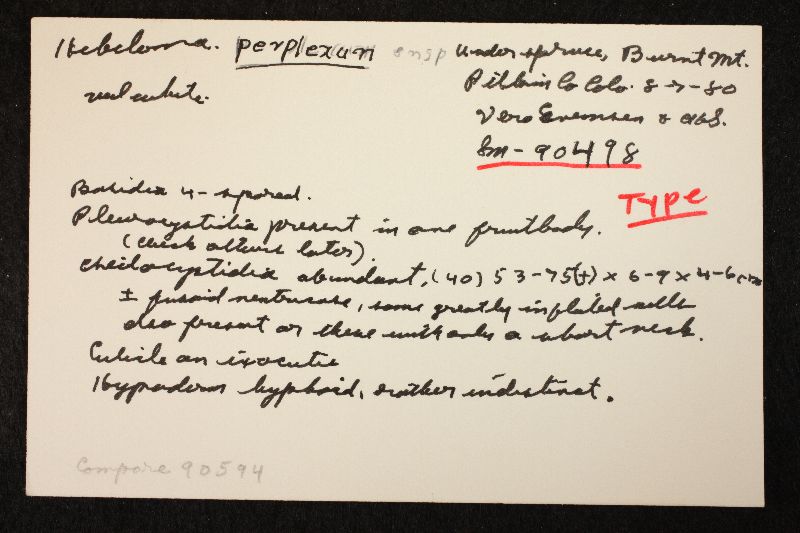 Hebeloma. perplexum snsp
under spruce, Burnt Mt.
Pitkin Co Colo. 8-7-80
veil white.
Vera Evenson & AHS.
Sm-90498
Type
Basidia 4-spored.
Pleurocystidia present in one fruitbody.
(check others later).
Cheilocystidia abundant, (40) 53-75(+) x 6-9 x 4-6
± fusoid ventricose, some greatly inflated cells
also present or these with only a short neck.
Cuticle an ixocutis
Hypoderm hyphoid, rather indistinct.
Compare 90594